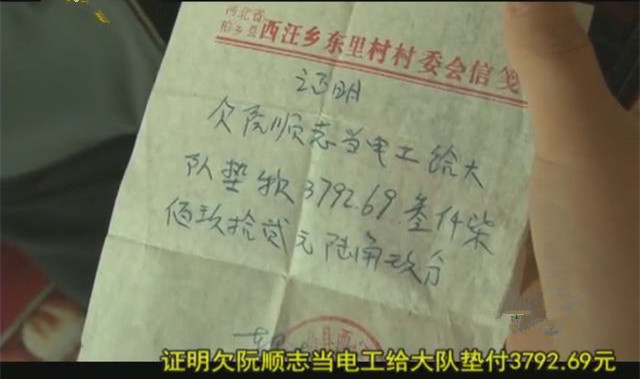 河北省
柏乡县 西汪乡东里村村委会信笺
证明
欠阮顺志当电工给大
队垫款3792.69.叁仟柒
佰玖拾贰元陆角玖分
证明欠阮顺志当电工给大队垫付3792.69元